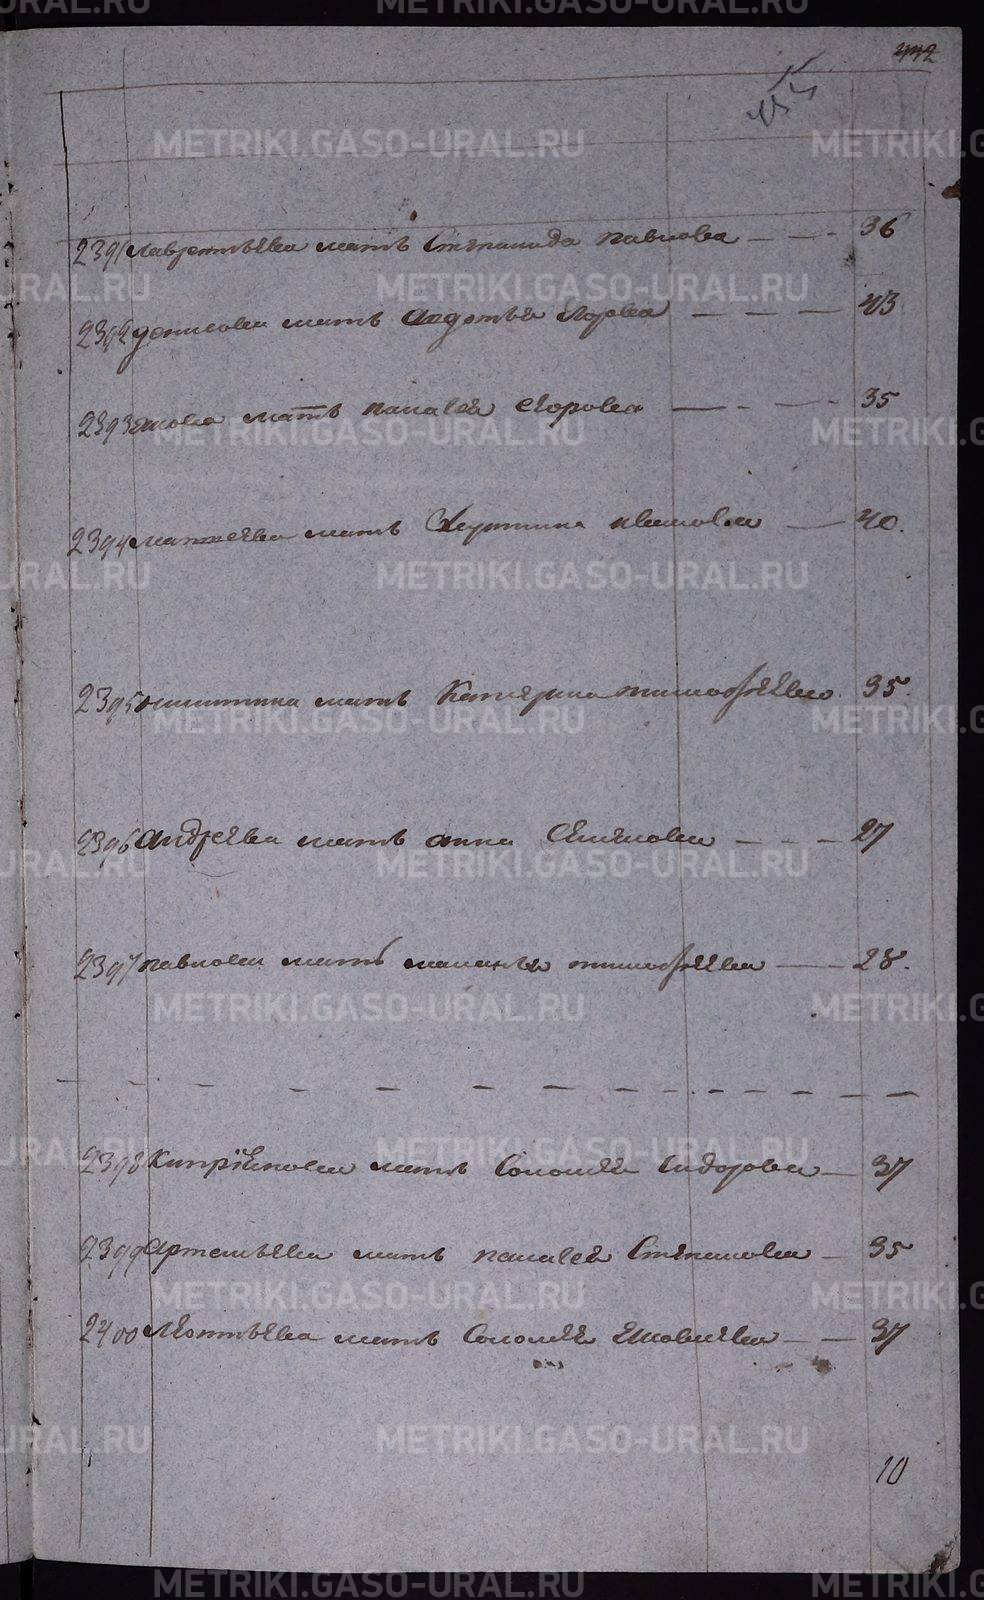 442
2391 лаврентьева мать Степанида павлова 36
2392 денисова мать Авдотья Егорова 43
2393 мать палагея Егорова 35
2394 матвеева мать ивановa 40.
2395 никитина мать Катерина тимофеева 35.
2396 андреева мать анна Семенова 27
2397 павлова мать маланья тимофеева 28.
2398 Кипрiянова мать Соломея Сидорова 37
2399 артемьева мать палагея Степанова 35
2400 Леонтьева мать Соломея 37
10
METRIKI.GASO-URAL.RU